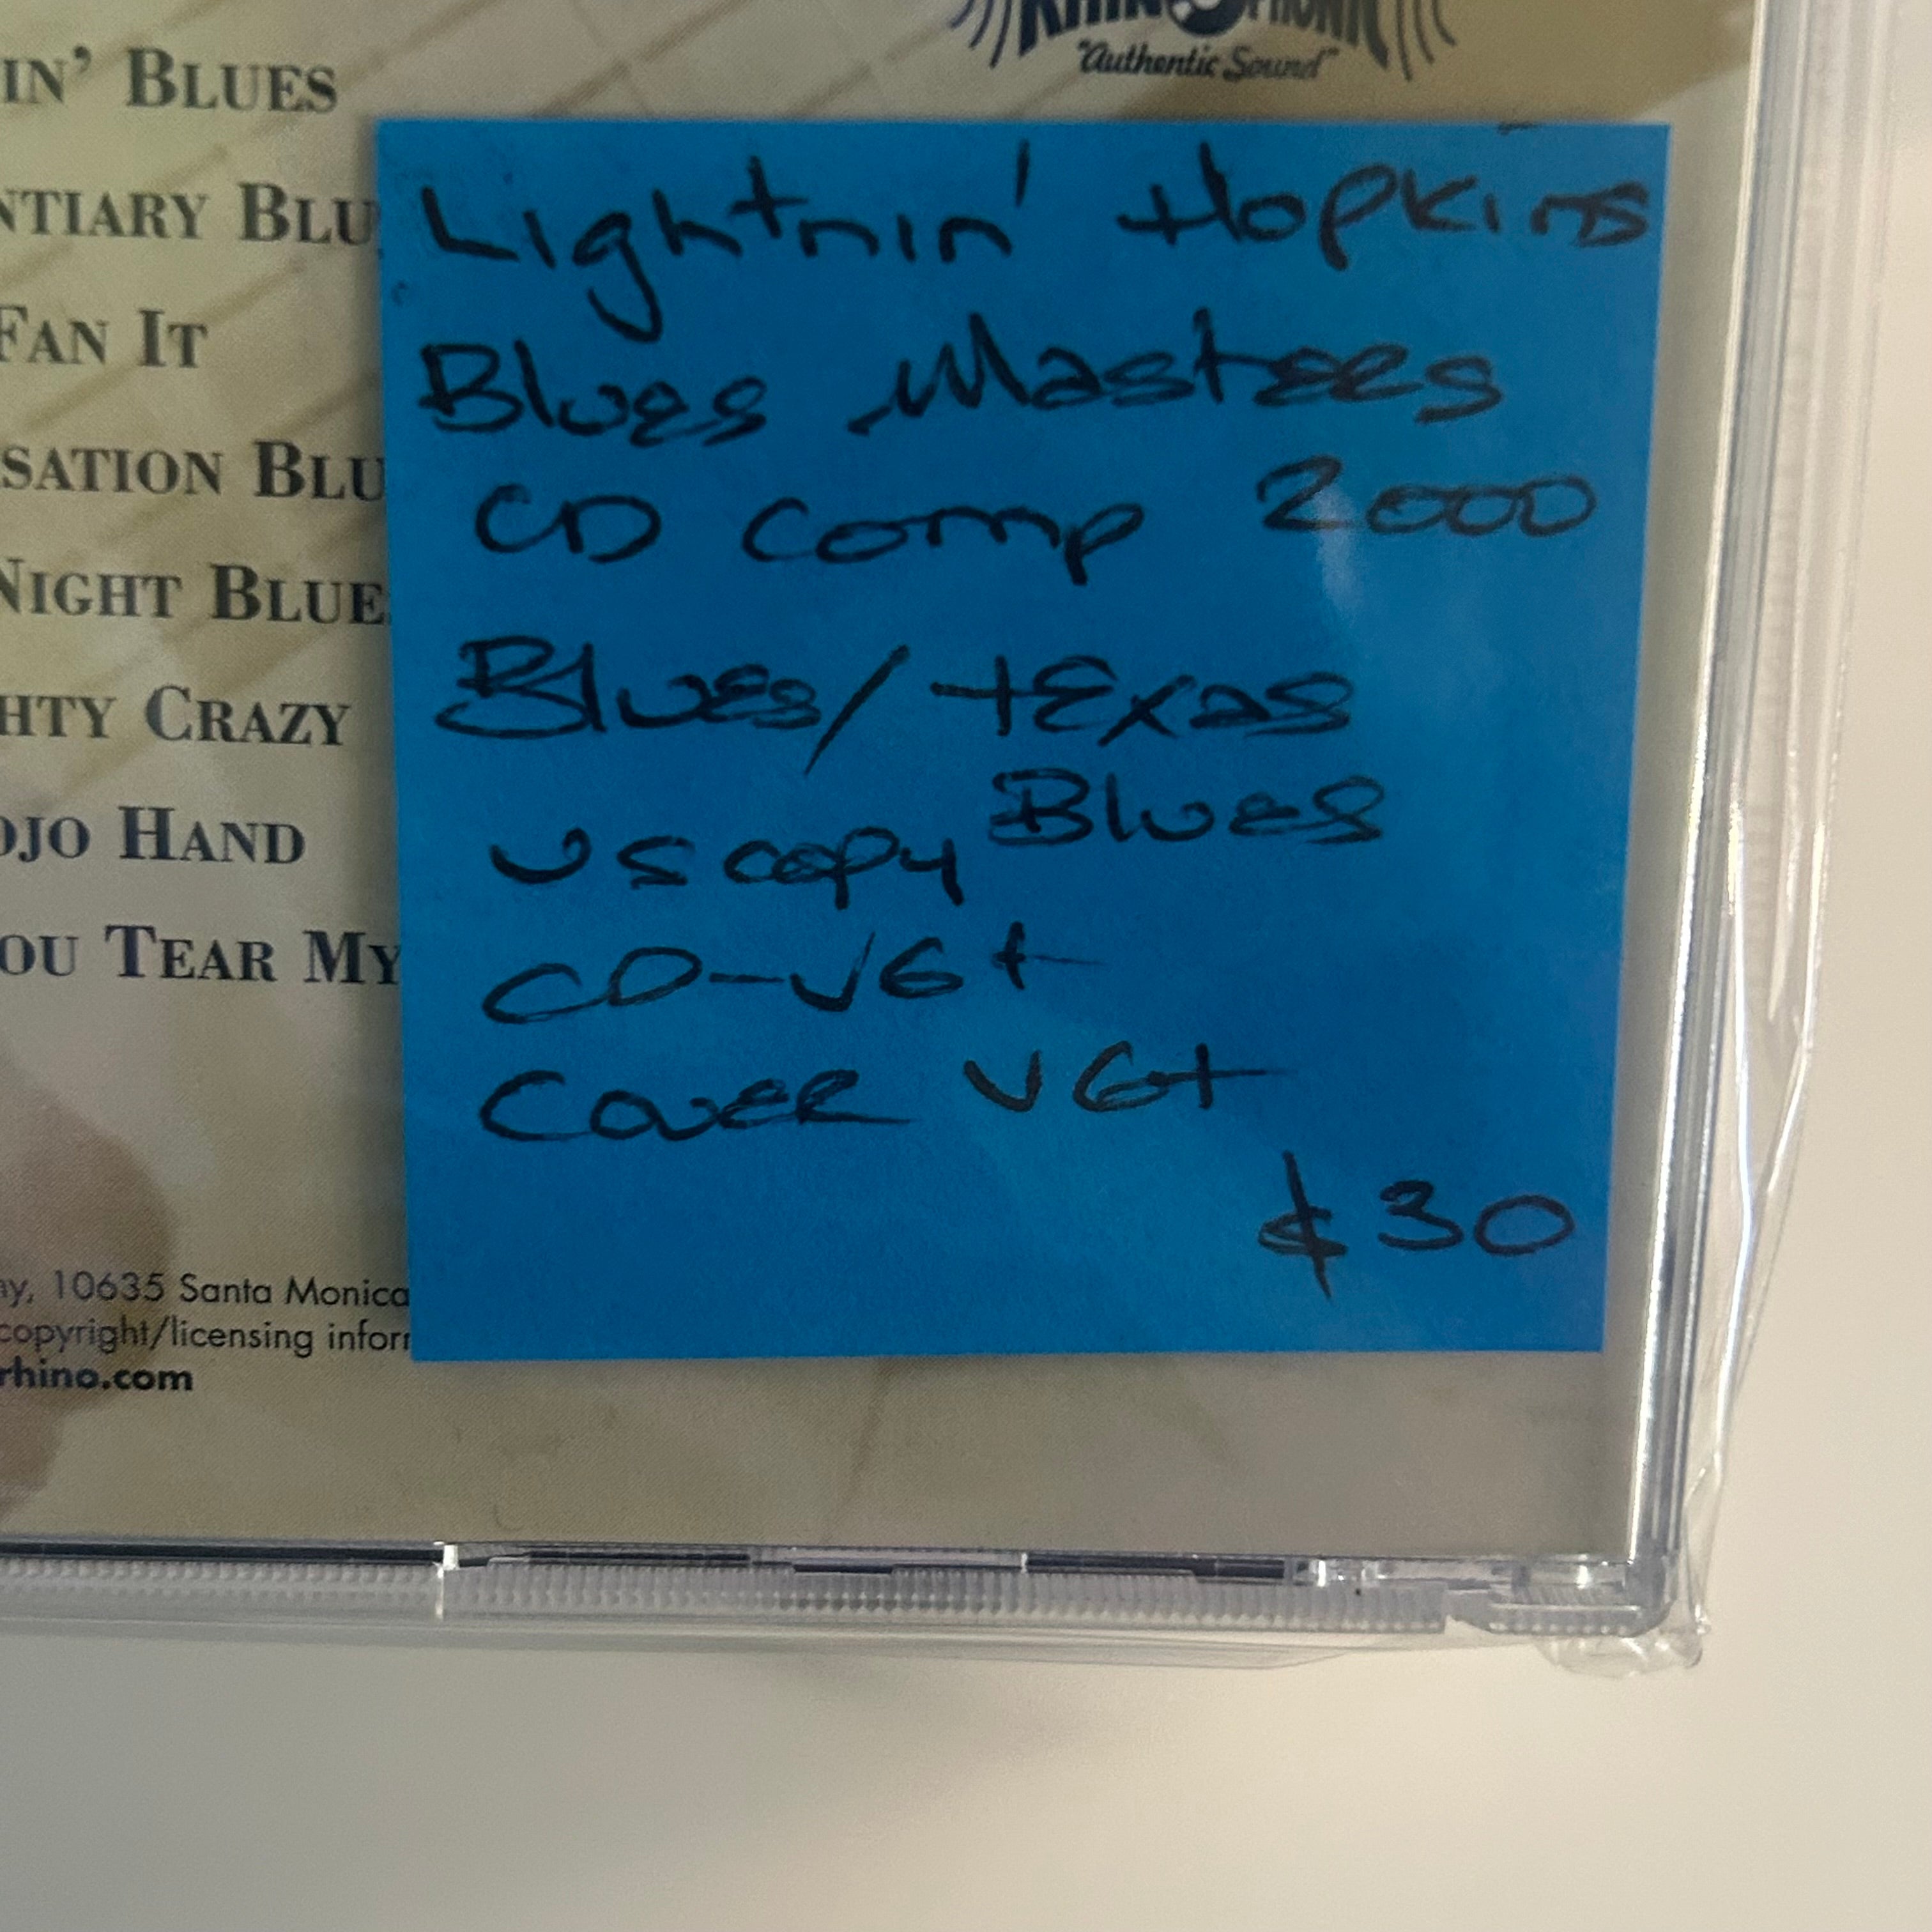 RHINOPHONIC
"Authentic Sound"
IN' BLUES
NTIARY BLU
FAN IT
SATION BLU
NIGHT BLUE
HTY CRAZY
OJO HAND
OU TEAR MY
Lightnin' Hopkins
Blues Masters
CD Comp 2000
Blues/Texas
Blues
US copy
CD-VG+
Cover VG+
$30
ny, 10635 Santa Monica
copyright/licensing infor
rhino.com